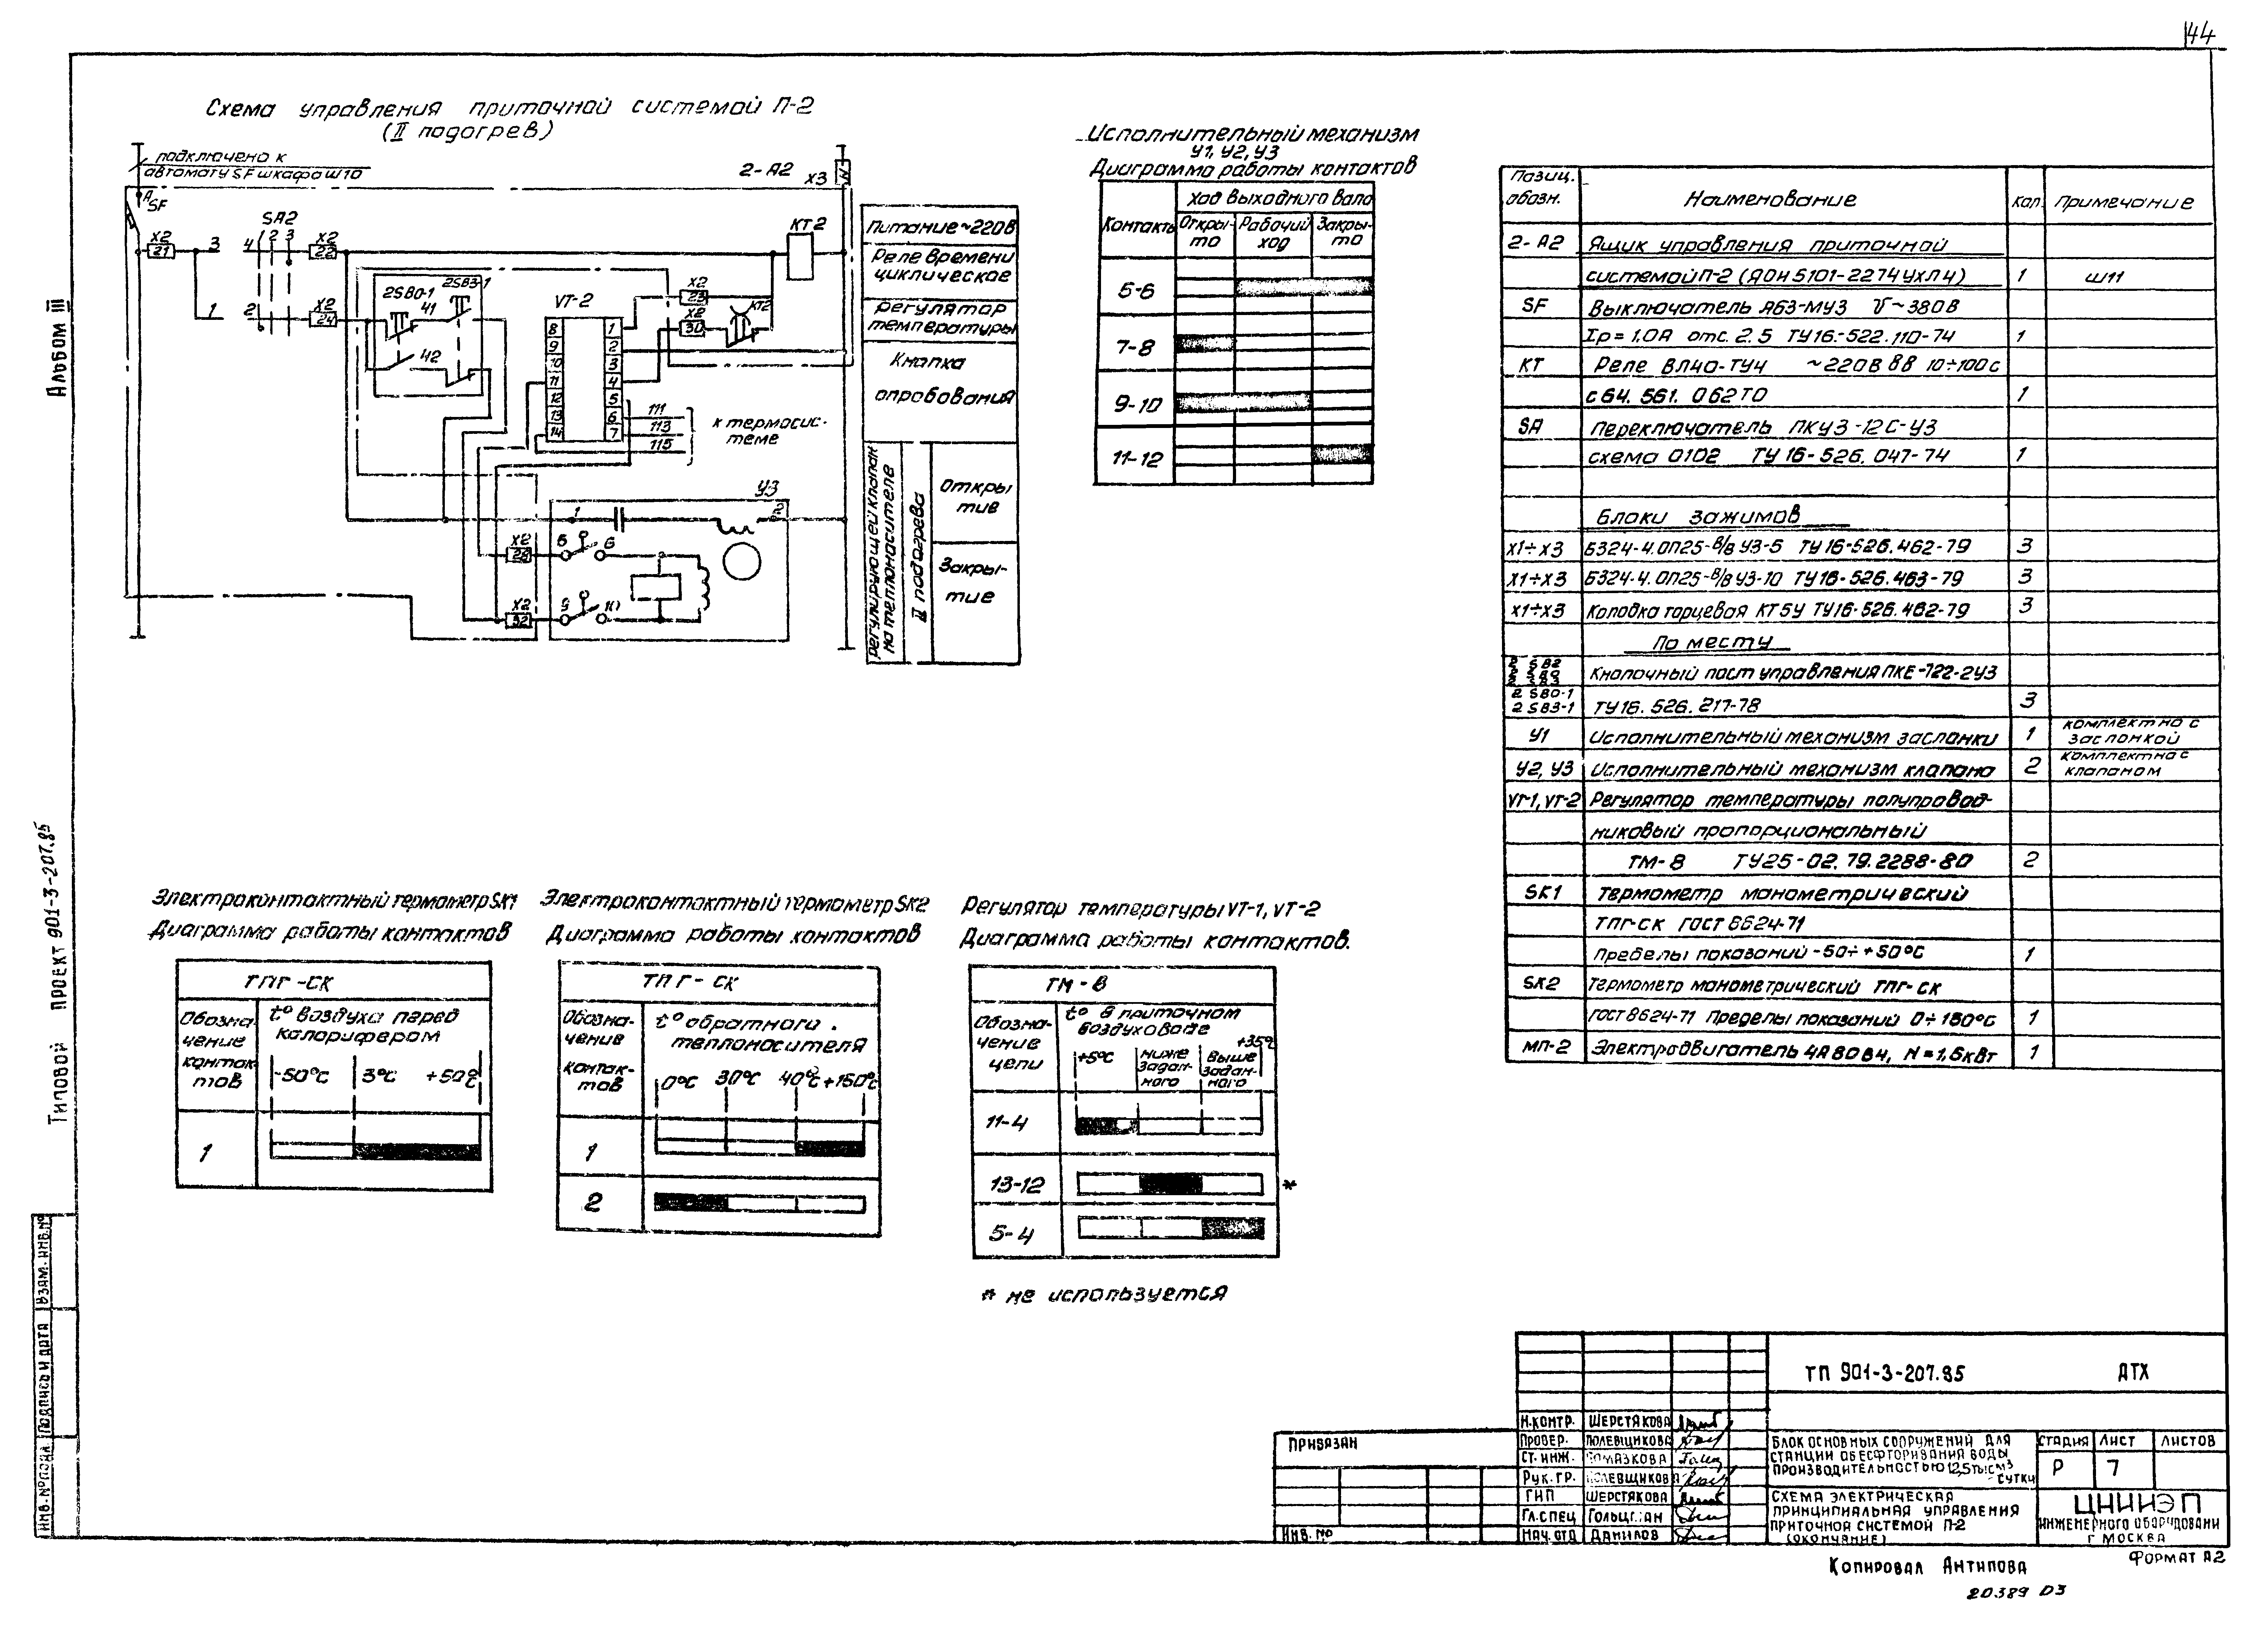 44
Схема управления приточной системой П-2
(II подогрев)
подключено к
автомату SF шкафа Ш10
2-А2
X3
N
A
SF
SA2
1 2 3
X2
21
3
4
X2
22
1
2
X2
24
КТ2
2SB0-1
2SB3-1
41
42
VT-2
8
9
10
11
12
13
14
1
2
3
4
5
6
7
X2
23
X2
30
КТ2
111
113
115
к термосис-
теме
У3
1
2
X2
28
5
6
X2
32
9
10
Питание ~220В
Реле времени
циклическое
Регулятор
температуры
Кнопка
опробования
Регулирующей клапан
на теплоносителе
II подогрева
Откры
тие
Закры-
тие
Исполнительный механизм
У1, У2, У3
Диаграмма работы контактов
Контакты
Ход выходного вала
Откры-
то
Рабочий
ход
Закры-
то
5-6
7-8
9-10
11-12
Позиц.
обозн.
Наименование
Кол.
Примечание
2-А2
Ящик управления приточной
системой П-2 (ЯОИ 5101-2274УХЛ4)
1
Ш11
SF
Выключатель А63-МУ3 V~380В
Iр=1.0А отс. 2.5 ТУ16-522.110-74
1
КТ
Реле ВЛ40-ТУ4 ~220В ВВ 10÷100с
с64.561.062ТО
1
SA
Переключатель ПКУ3-12С-У3
схема 0102 ТУ16-526.047-74
1
Блоки зажимов
X1÷X3
Б324-4.0П25-В/В У3-5 ТУ16-526.462-79
3
X1÷X3
Б324-4.0П25-В/В У3-10 ТУ16-526.463-79
3
X1÷X3
Колодка торцевая КТ5У ТУ16-526.462-79
3
По месту
2 SB2
Кнопочный пост управления ПКЕ-722-2У3
2 SB0-1
2 SB3-1
ТУ16.526.217-78
3
У1
Исполнительный механизм заслонки
1
комплектно с
заслонкой
У2, У3
Исполнительный механизм клапана
2
комплектно с
клапаном
VT-1, VT-2
Регулятор температуры полупровод-
никовый пропорциональный
ТМ-8 ТУ25-02.79.2288-80
2
SK1
Термометр манометрический
ТПГ-СК ГОСТ 8624-71
Пределы показаний -50÷+50°С
1
SK2
Термометр манометрический ТПГ-СК
ГОСТ 8624-71 Пределы показаний 0÷150°С
1
МП-2
Электродвигатель 4А80В4, N=1,5кВт
1
Электроконтактный термометр SK1
Диаграмма работы контактов
ТПГ-СК
Обозна-
чение
контак-
тов
t° воздуха перед
калорифером
-50°С
3°С
+50°С
1
Электроконтактный термометр SK2
Диаграмма работы контактов
ТПГ-СК
Обозна-
чение
контак-
тов
t° обратного
теплоносителя
0°С
30°С
40°С
+150°С
1
2
Регулятор температуры VT-1, VT-2
Диаграмма работы контактов.
ТМ-8
Обозна-
чение
цепи
t° в приточном
воздуховоде
+5°С
ниже
задан-
ного
выше
задан-
ного
+35°С
11-4
13-12
*
5-4
* не используется
Альбом III
Типовой проект 901-3-207.85
Инв. № подл
Подпись и дата
Взам. инв. №
Привязан
Инв. №
ТП 901-3-207.85
АТХ
Н.контр. Шерстякова
Провер. Полевщикова
Ст. инж. Ромазкова
Рук. гр. Полевщикова
ГИП Шерстякова
Гл. спец
Нач. отд Данилов
Блок основных сооружений для
станции обесфторивания воды
производительностью 12,5 тыс м³
сутки
Стадия
Лист
Листов
Р
7
Схема электрическая
принципиальная управления
приточной системой П-2
(окончание)
ЦНИИЭП
инженерного оборудовани
г Москва
Копировал Антипова
Формат А2
20389 03